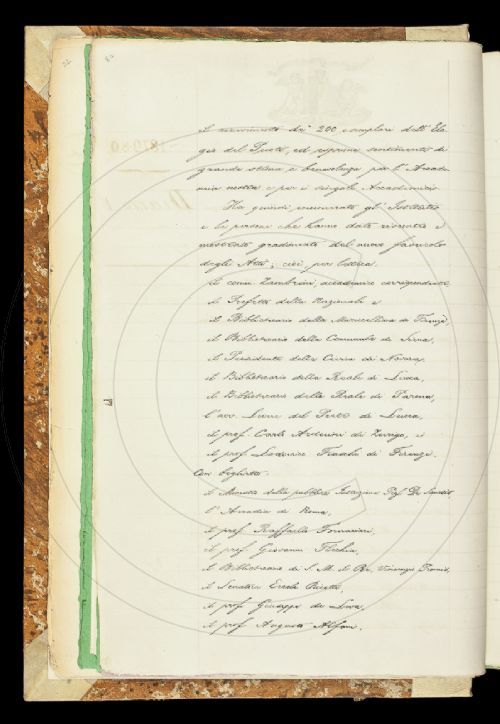 di 200 esemplari dell' Elo-
gio del Prati, ed esprime sentimenti di
grande stima e benevolenza per l'Acade-
mia nostra e per i singoli Accademici.
Ha quindi gl' Istituti
e le persone che hanno dato riscontro e
mostrato gradimento del nuovo fascicolo
degli Atti; cioè per lettera
il comm. Zambrini, accademico corrispondente
il Prefetto della Nazionale e
il Bibliotecario della Marucelliana di Firenze,
il Bibliotecario della Comunale di Siena,
il Presidente della di Novara,
il Bibliotecario della Reale di Lucca,
il Bibliotecario della Reale di Parma,
l'avv. del di Lucca,
il prof. Conte di e
il prof. Lodovico di Firenze.
Con biglietto
il Ministro della pubblica Istruzione Prof. De Sanctis,
l'Arcadia di Roma,
il prof. Raffaello Fornaciari,
il prof. Giovanni Flechia,
il Bibliotecario di S. M. il Re, Vincenzo Promis,
il Senatore Ercole
il prof. Giuseppe de
il prof. Augusto Alfani.